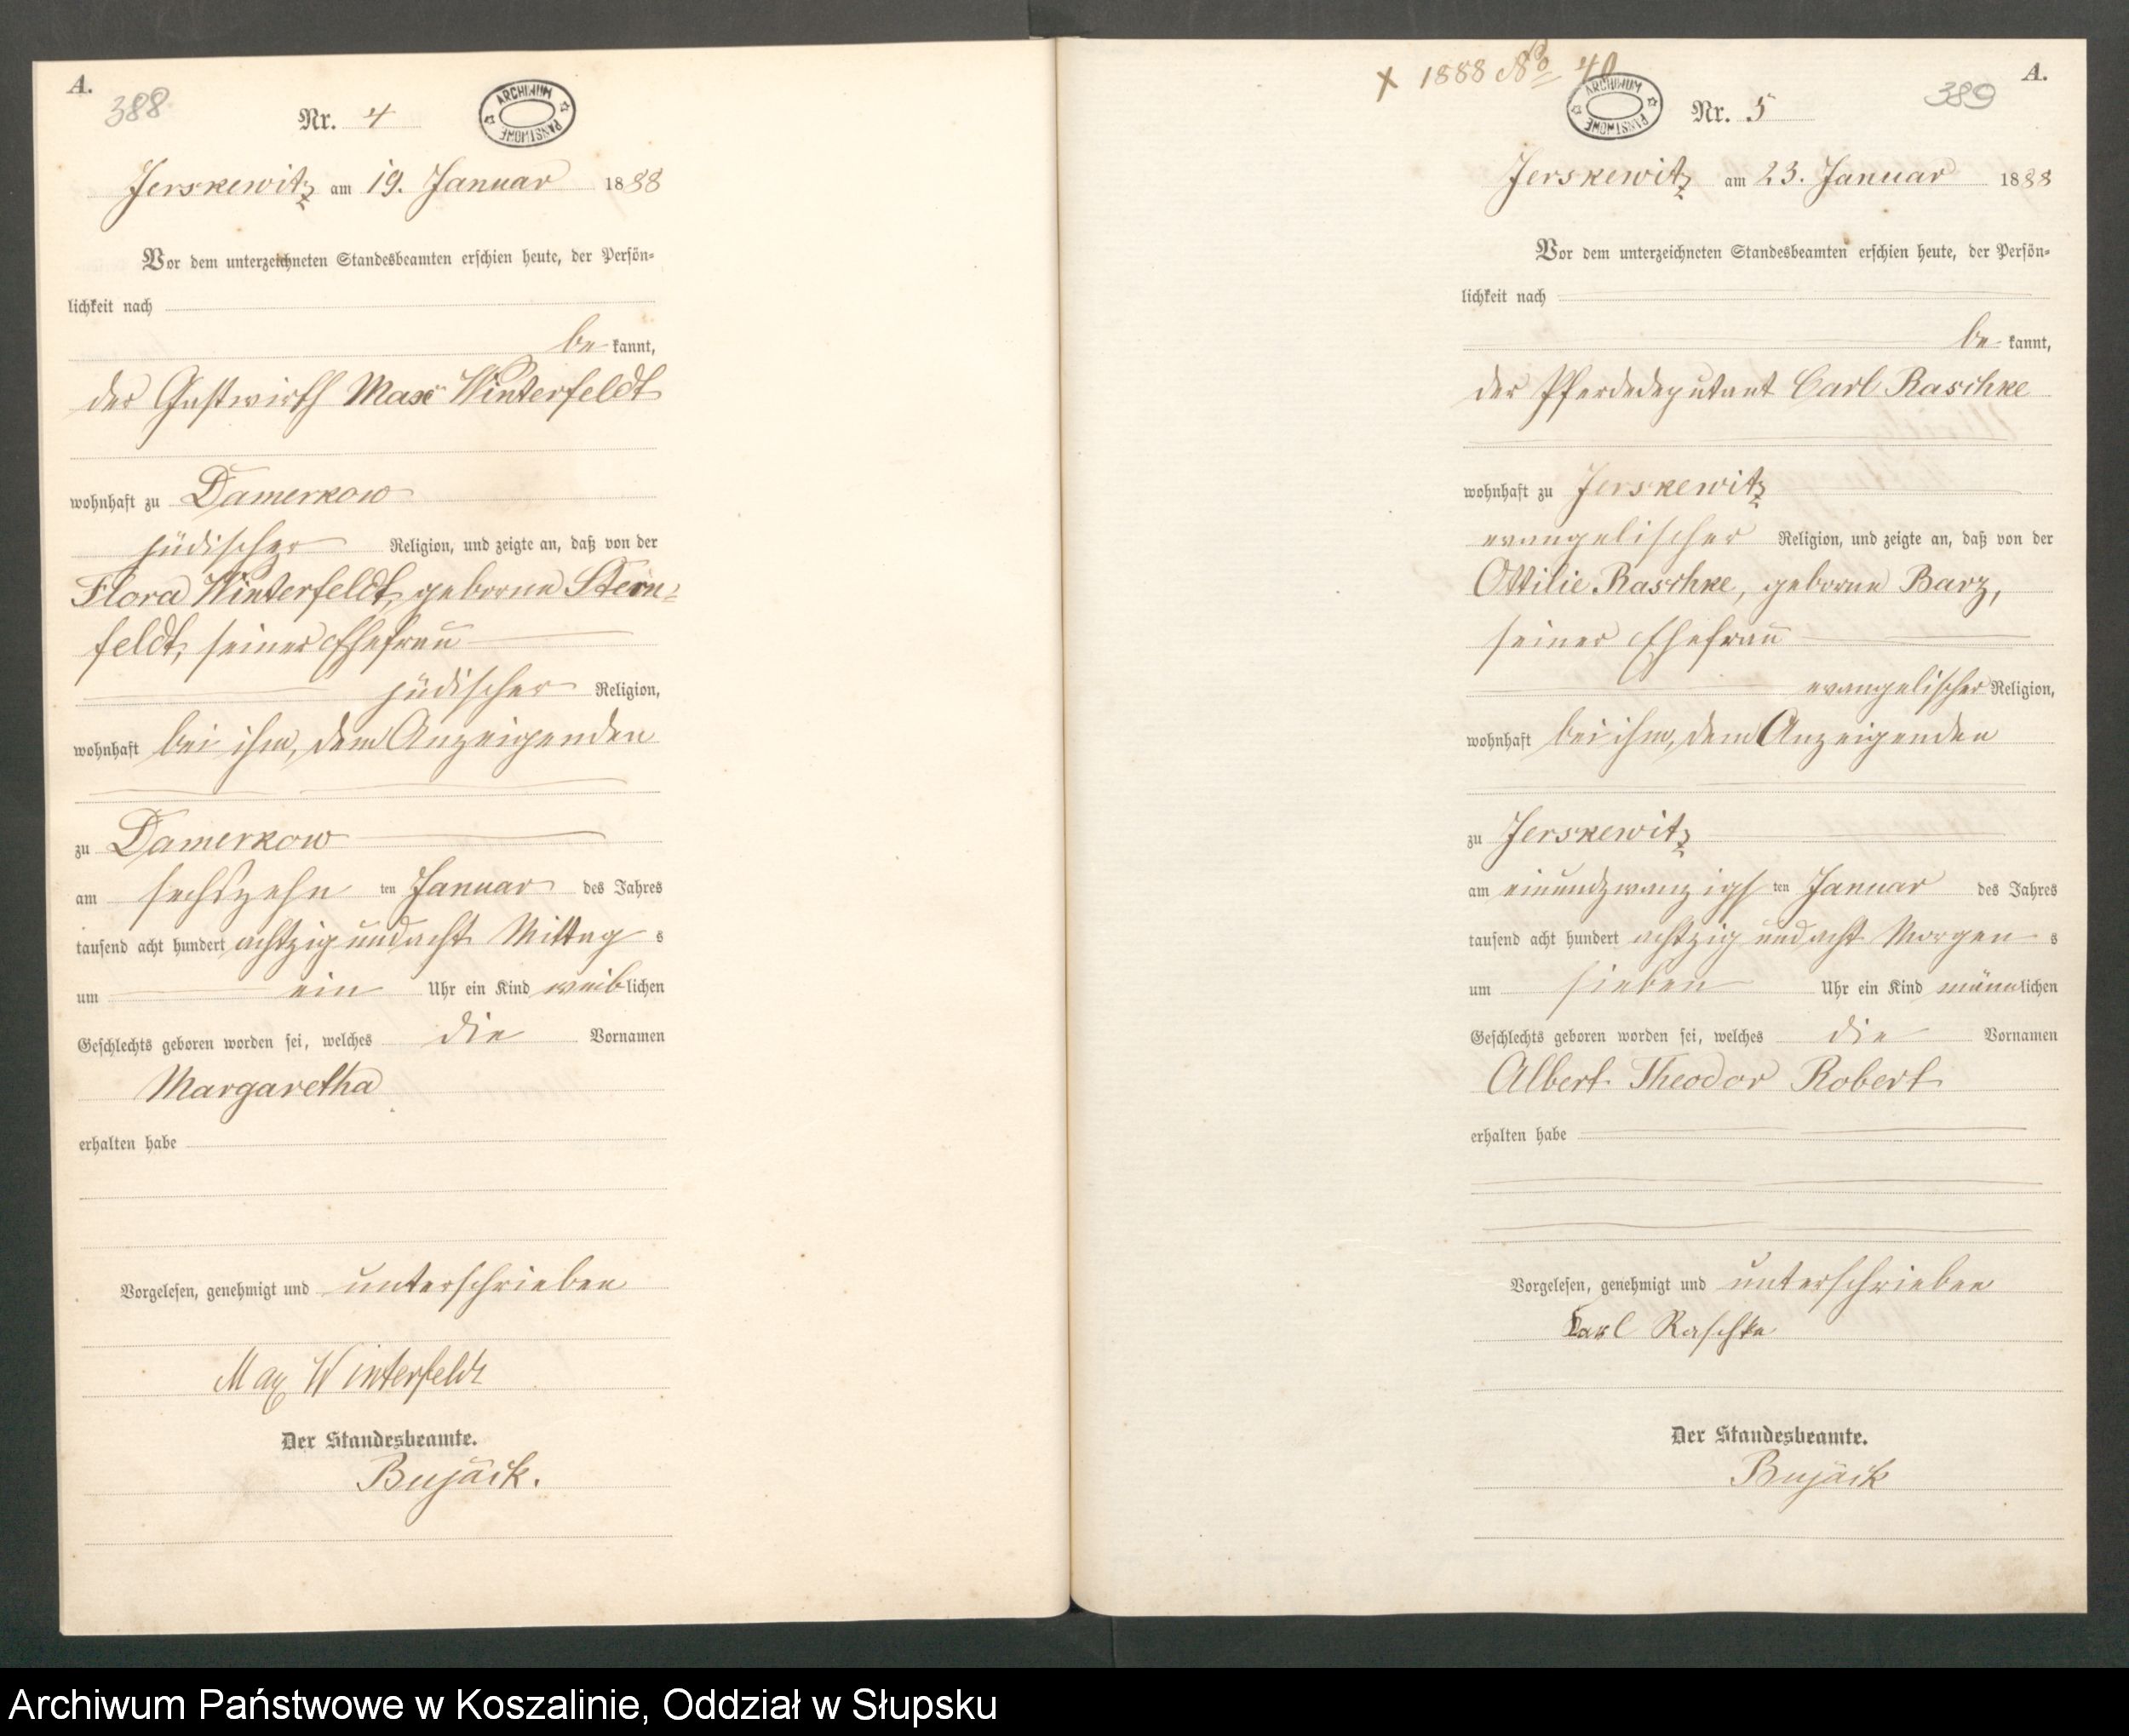 A.
388
Nr. 4
ARCHIWUM PAŃSTWOWE
Jerskewitz am 19. Januar 1888
Vor dem unterzeichneten Standesbeamten erschien heute, der Persön-
lichkeit nach
be kannt,
der Gastwirth Max Winterfeldt
wohnhaft zu Damerkow
jüdischer Religion, und zeigte an, daß von der
Flora Winterfeldt, geborne Stern-
feldt, seiner Ehefrau
jüdischer Religion,
wohnhaft bei ihm, dem Anzeigenden
zu Damerkow
am sechszehn ten Januar des Jahres
tausend acht hundert achtzig und acht Mittag s
um ein Uhr ein Kind weiblichen
Geschlechts geboren worden sei, welches die Vornamen
Margaretha
erhalten habe
Vorgelesen, genehmigt und unterschrieben
Max Winterfeldt
Der Standesbeamte.
Bujäck.
+ 1888 No 40
A.
389
ARCHIWUM PAŃSTWOWE
Nr. 5
Jerskewitz am 23. Januar 1888
Vor dem unterzeichneten Standesbeamten erschien heute, der Persön-
lichkeit nach
be kannt,
der Pferdedeputant Carl Raschke
wohnhaft zu Jerskewitz
evangelischer Religion, und zeigte an, daß von der
Ottilie Raschke, geborne Barz,
seiner Ehefrau
evangelischer Religion,
wohnhaft bei ihm, dem Anzeigenden
zu Jerskewitz
am einundzwanzigs ten Januar des Jahres
tausend acht hundert achtzig und acht Morgen s
um sieben Uhr ein Kind männlichen
Geschlechts geboren worden sei, welches die Vornamen
Albert Theodor Robert
erhalten habe
Vorgelesen, genehmigt und unterschrieben
Karl Raschke
Der Standesbeamte.
Bujäck
Archiwum Państwowe w Koszalinie, Oddział w Słupsku